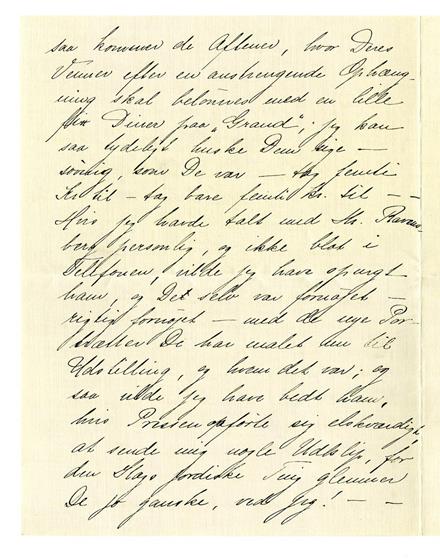 saa kommer de Aftener, hvor Deres
Venner efter en anstrengende Ophæng-
ning skal belönnes med en lille
fin Diner paa „Grand“; jeg kan
saa tydeligt huske Dem sige —
søvnig, som De var — tag femti
Kr til — tag bare femti Kr. til — —
Hvis jeg havde talt med Hr. Ravens-
berg personlig, og ikke blot i
Telefonen, vilde jeg have spurgt
ham, og De selv var fornøjet —
rigtig fornøjet — med de nye Por-
trætter De har malet nu til
Udstilling, og hvem det var; og
saa vilde jeg have bedt ham,
hvis Pressen opførte sig elskværdigt,
at sende mig nogle Udklip, for
den Slags jordiske Ting glemmer
De jo ganske, ved jeg! — —